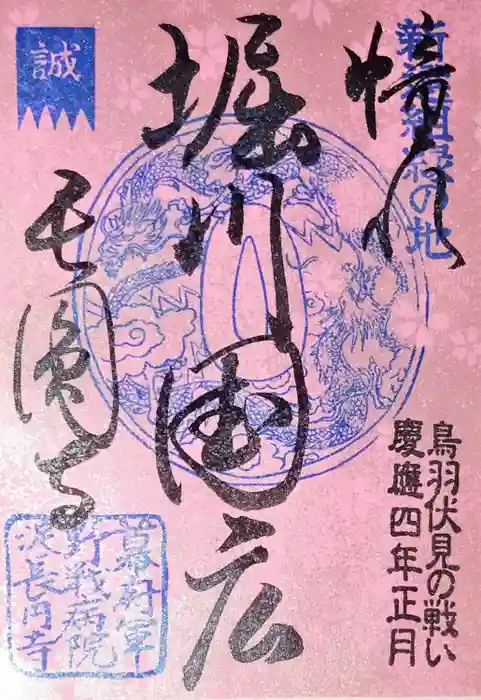 新選組縁の地
堀川国広
誠
長圓寺
鳥羽伏見の戦い
慶應四年正月
幕府軍
野戦病院
淀長円寺